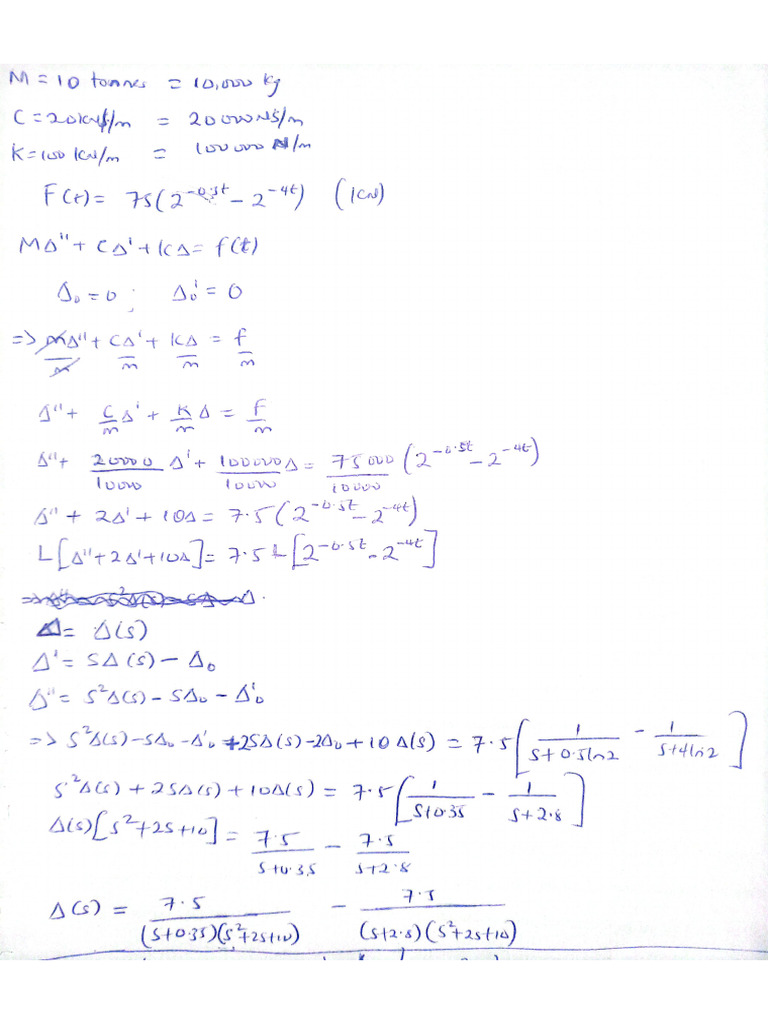 M = 10 tonnes = 10,000 kg
C = 20kNs/m = 20000NS/m
K = 100 kN/m = 100000 N/m
F(t) = 75(2^-0.5t - 2^-4t) (kN)
MΔ'' + CΔ' + KΔ = f(t)
Δ₀ = 0 ; Δ₀' = 0
=> mΔ''/m + CΔ'/m + KΔ/m = f/m
Δ'' + C/m Δ' + K/m Δ = f/m
Δ'' + 20000/10000 Δ' + 100000Δ/10000 = 75000/10000 (2^-0.5t - 2^-4t)
Δ'' + 2Δ' + 10Δ = 7.5(2^-0.5t - 2^-4t)
L[Δ'' + 2Δ' + 10Δ] = 7.5 L[2^-0.5t - 2^-4t]
Δ = Δ(s)
Δ' = SΔ(s) - Δ₀
Δ'' = S²Δ(s) - SΔ₀ - Δ₀'
=> S²Δ(s) - SΔ₀ - Δ₀' + 2SΔ(s) - 2Δ₀ + 10Δ(s) = 7.5[1/(S+0.5ln2) - 1/(S+4ln2)]
S²Δ(s) + 2SΔ(s) + 10Δ(s) = 7.5[1/(S+0.35) - 1/(S+2.8)]
Δ(s)[S²+2S+10] = 7.5/(S+0.35) - 7.5/(S+2.8)
Δ(s) = 7.5/((S+0.35)(S²+2S+10)) - 7.5/((S+2.8)(S²+2S+10))